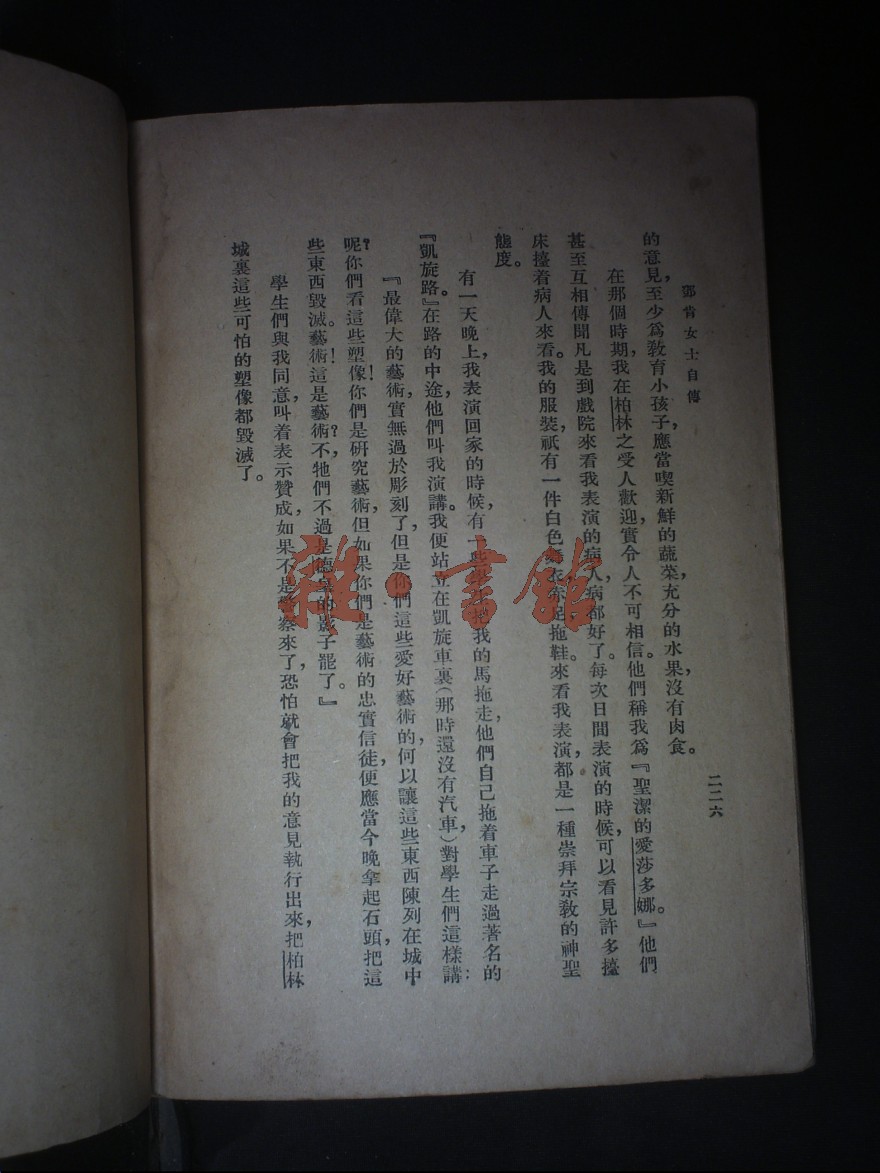 鄧肯女士自傳
二二六
的意見，至少爲教育小孩子，應當喫新鮮的蔬菜，充分的水果，沒有肉食。
在那個時期，我在柏林之受人歡迎，實令人不可相信。他們稱我爲『聖潔的愛莎多娜。』他們
甚至互相傳聞凡是到戲院來看我表演的病人，病都好了。每次日間表演的時候，可以看見許多擡
床擡着病人來看。我的服裝，祇有一件白色舞衣，赤足拖鞋。來看我表演，都是一種崇拜宗教的神聖
態度。
有一天晚上，我表演回家的時候，有一些把我的馬拖走，他們自己拖着車子走過著名的
『凱旋路。』在路的中途，他們叫我演講。我便站立在凱旋車裏（那時還沒有汽車）對學生們這樣講：
『最偉大的藝術，實無過於彫刻了，但是你們這些愛好藝術的，何以讓這些東西陳列在城中
呢？你們看這些塑像！你們是研究藝術，但如果你們是藝術的忠實信徒，便應當今晚拿起石頭，把這
些東西毀滅。藝術！這是藝術？不，牠們不過是德皇的影子罷了。』
學生們與我同意，叫着表示贊成，如果不是警察來了，恐怕就會把我的意見執行出來，把柏林
城裏這些可怕的塑像都毀滅了。
雜·書館